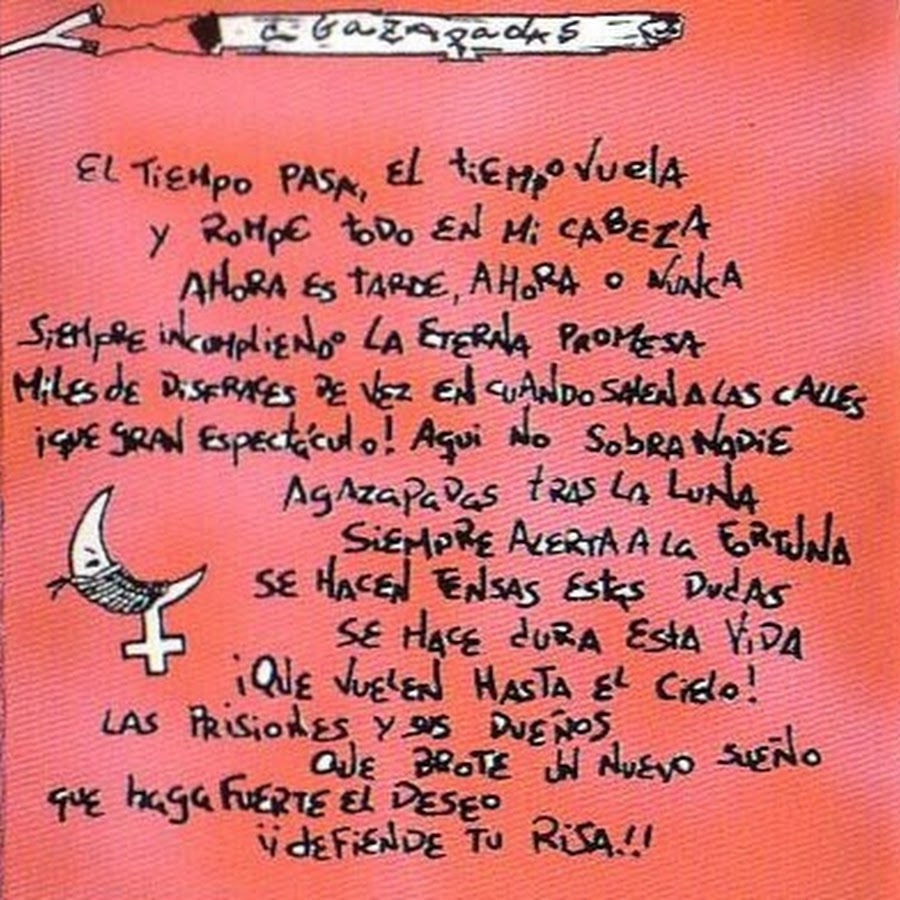 agazapadas
EL TIEMPO PASA, EL tIEMPO VUelA
Y ROMPE toDO EN Mi CABEZA
AHORA ES TARDE, AHORA O NUNCA
SIEMPRE incumpliENDO LA ETERNA PROMESA
MILES de DISFRACES DE VEZ EN CUANDO SALEN A LAS CALLES
¡QUE GRAN Espectáculo! Aqui No SobRA NADIE
AgAzAPADAS tRAS LA LUNA
SIEMPRE ALERTA A La FORTUNA
SE HACEN TENSAS Estas DUDAS
SE HACE dURA Esta VIDA
¡QUE VUELEN HASTA EL Cielo!
LAS PRISIONES Y sus DUEÑOS
QUE BROTE UN NUEVO SUEÑO
que haga FUERTE El DESEO
¡¡dEFIENDE TU RISA!!